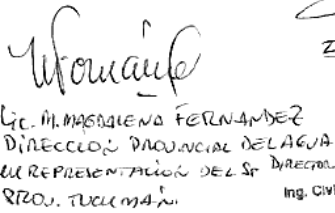 Lic. M. MAGDALENA FERNANDEZ
DIRECCION PROVINCIAL DEL AGUA
EN REPRESENTACION DEL Sr DIRECTOR
PROV. TUCUMAN.
Ing. Civi